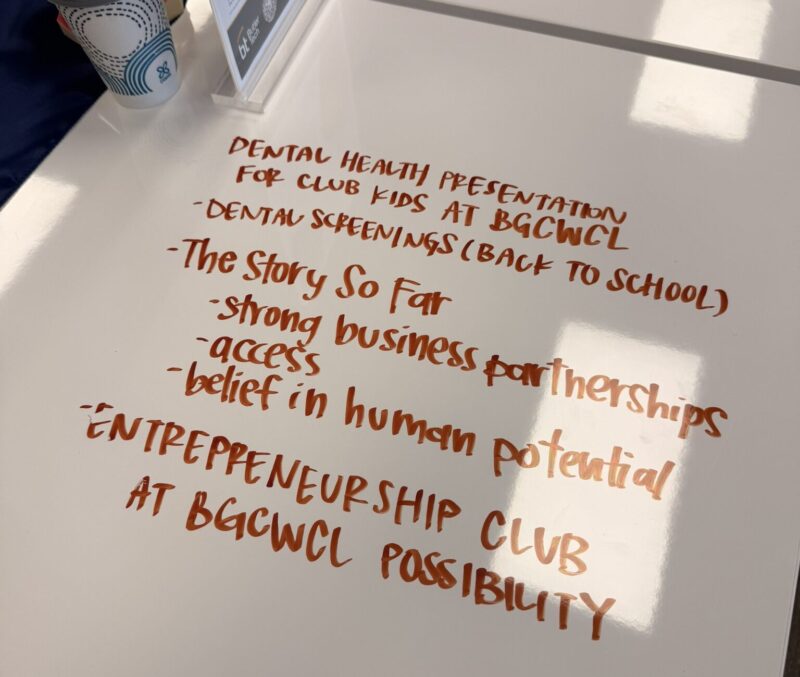 DENTAL HEALTH PRESENTATION
FOR CLUB KIDS AT BGCWCL
-DENTAL SCREENINGS (BACK TO SCHOOL)
-The Story So Far
-strong business partnerships
-access
-belief in human potential
-ENTREPRENEURSHIP CLUB
AT BGCWCL POSSIBILITY